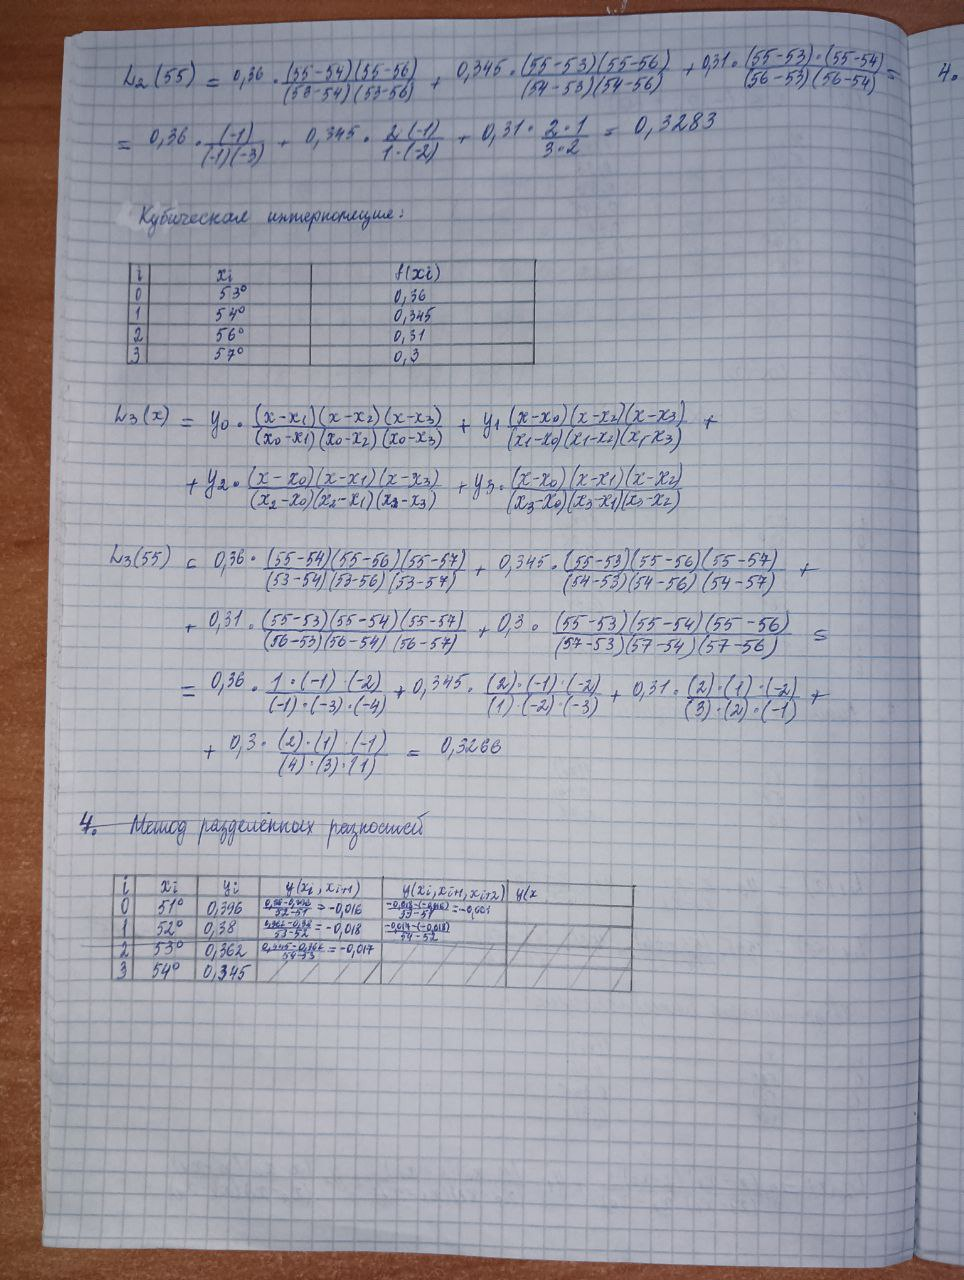 L₂(55) = 0,36 · (55-54)(55-56)/(53-54)(53-56) + 0,345 · (55-53)(55-56)/(54-53)(54-56) + 0,31 · (55-53)·(55-54)/(56-53)(56-54) =
= 0,36 · (-1)/(-1)(-3) + 0,345 · 2(-1)/1·(-2) + 0,31 · 2·1/3·2 = 0,3283
Кубическая интерполяция:
i xi f(xi)
0 53° 0,36
1 54° 0,345
2 56° 0,31
3 57° 0,3
L₃(x) = y₀ · (x-x₁)(x-x₂)(x-x₃)/(x₀-x₁)(x₀-x₂)(x₀-x₃) + y₁ (x-x₀)(x-x₂)(x-x₃)/(x₁-x₀)(x₁-x₂)(x₁-x₃) +
+ y₂ · (x-x₀)(x-x₁)(x-x₃)/(x₂-x₀)(x₂-x₁)(x₂-x₃) + y₃ · (x-x₀)(x-x₁)(x-x₂)/(x₃-x₀)(x₃-x₁)(x₃-x₂)
L₃(55) = 0,36 · (55-54)(55-56)(55-57)/(53-54)(53-56)(53-57) + 0,345 · (55-53)(55-56)(55-57)/(54-53)(54-56)(54-57) +
+ 0,31 · (55-53)(55-54)(55-57)/(56-53)(56-54)(56-57) + 0,3 · (55-53)(55-54)(55-56)/(57-53)(57-54)(57-56) =
= 0,36 · 1·(-1)·(-2)/(-1)·(-3)·(-4) + 0,345 · (2)·(-1)·(-2)/(1)·(-2)·(-3) + 0,31 · (2)·(1)·(-2)/(3)·(2)·(-1) +
+ 0,3 · (2)·(1)·(-1)/(4)·(3)·(1) = 0,3266
4. Метод разделённых разностей
i xi yi y(xi, xi+1) y(xi, xi+1, xi+2) y(x
0 51° 0,396 0,38-0,396/52-51 = -0,016 -0,018-(-0,016)/53-51 = -0,001
1 52° 0,38 0,362-0,38/53-52 = -0,018 -0,017-(-0,018)/54-52
2 53° 0,362 0,345-0,362/54-53 = -0,017
3 54° 0,345
4.